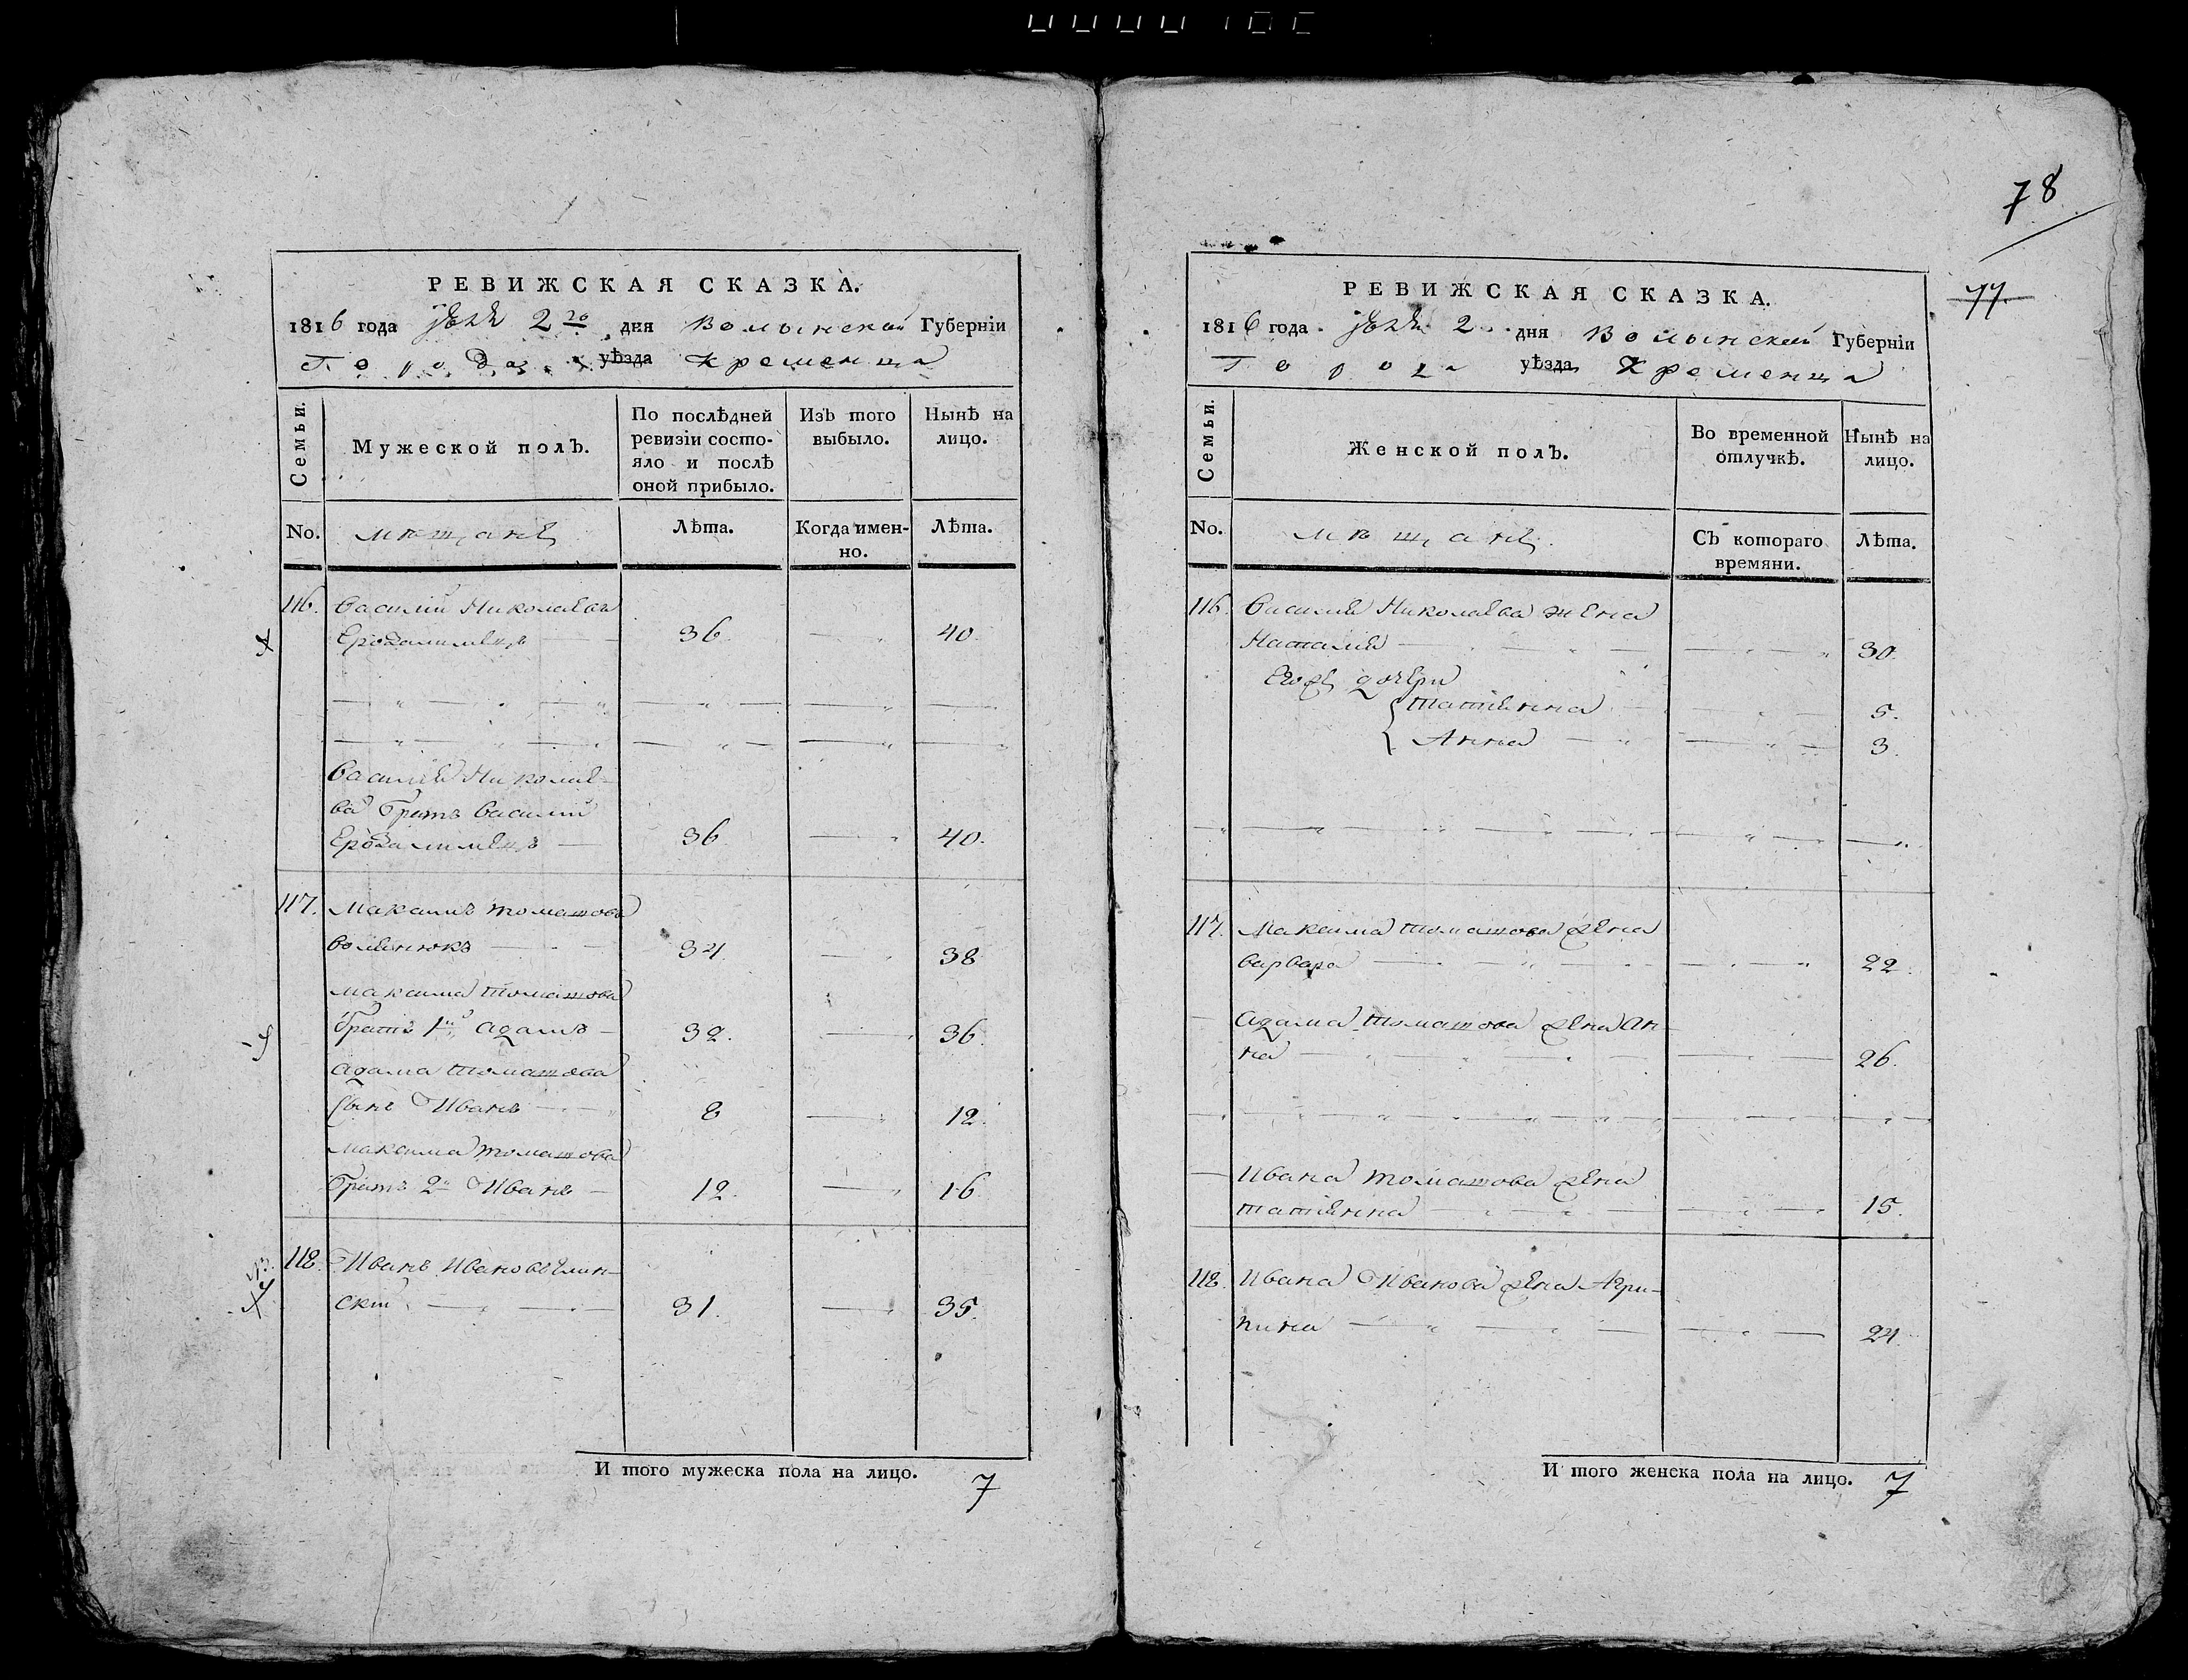 РЕВИЖСКАЯ СКАЗКА.
1816 года 2го дня Волынской Губернiи
Города уѣзда Кременца
Семьи.
Мужеской полъ.
По послѣдней ревизiи состо-
яло и послѣ
оной прибыло.
Изъ того
выбыло.
Нынѣ на
лицо.
No.
мѣщанѣ
Лѣта.
Когда имен-
но.
Лѣта.
116. Василiй Николаевъ
36. 40.
Василiя Николае-
ва братъ Василiй
36. 40.
117. Максимъ Томашовъ
34. 38
Максима Томашова
братъ 1й Адамъ 32. 36.
Адама Томашова
Сынъ Иванъ 8 12.
Максима Томашова
братъ 2й Иванъ 12. 16
118. Иванъ Ивановъ
скiй 31. 35.
И того мужеска пола на лицо. 7
78
77.
РЕВИЖСКАЯ СКАЗКА.
1816 года 2 дня Волынской Губернiи
Города уѣзда Кременца
Семьи.
Женской полъ.
Во временной
отлучкѣ.
Нынѣ на
лицо.
No.
мѣщанѣ.
Съ котораго
времяни.
Лѣта.
116. Василiя Николаева жена
Наталiя 30.
Егоже дочери
Татiянна 5.
Анна 3.
117. Максима Томашова жена
варвара 22.
Адама Томашова жена Ан-
на 26.
Ивана Томашова жена
татiянна 15.
118. Ивана Иванова жена Агри-
пина 24.
И того женска пола на лицо. 7